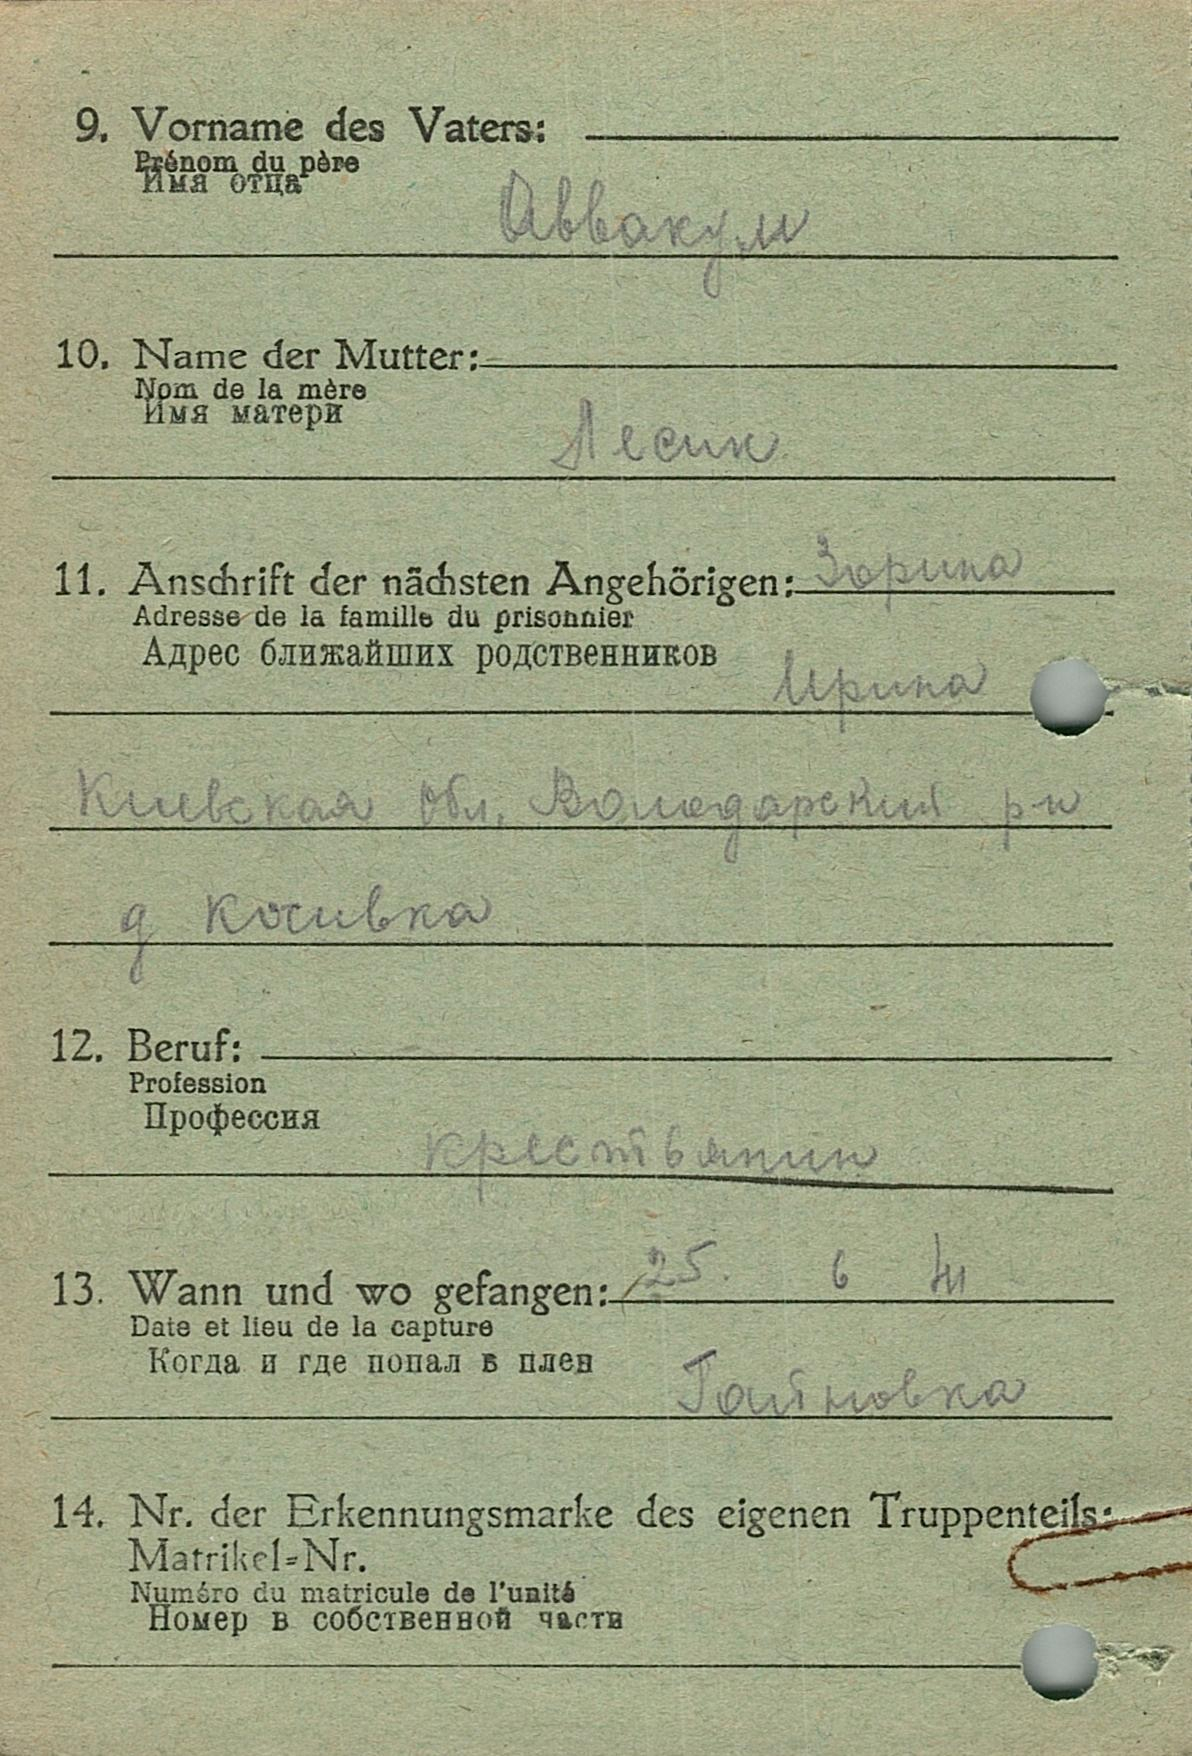 9. Vorname des Vaters:
Prénom du père
Имя отца
Аввакум
10. Name der Mutter:
Nom de la mère
Имя матери
Лесик
11. Anschrift der nächsten Angehörigen: Зорина
Adresse de la famille du prisonnier
Адрес ближайших родственников
Ирина
Киевская обл. Володарский р-н
д Косивка
12. Beruf:
Profession
Профессия
крестьянин
13. Wann und wo gefangen: 25. 6
Date et lieu de la capture
Когда и где попал в плен
Гайновка
14. Nr. der Erkennungsmarke des eigenen Truppenteils:
Matrikel=Nr.
Numéro du matricule de l'unité
Номер в собственной части